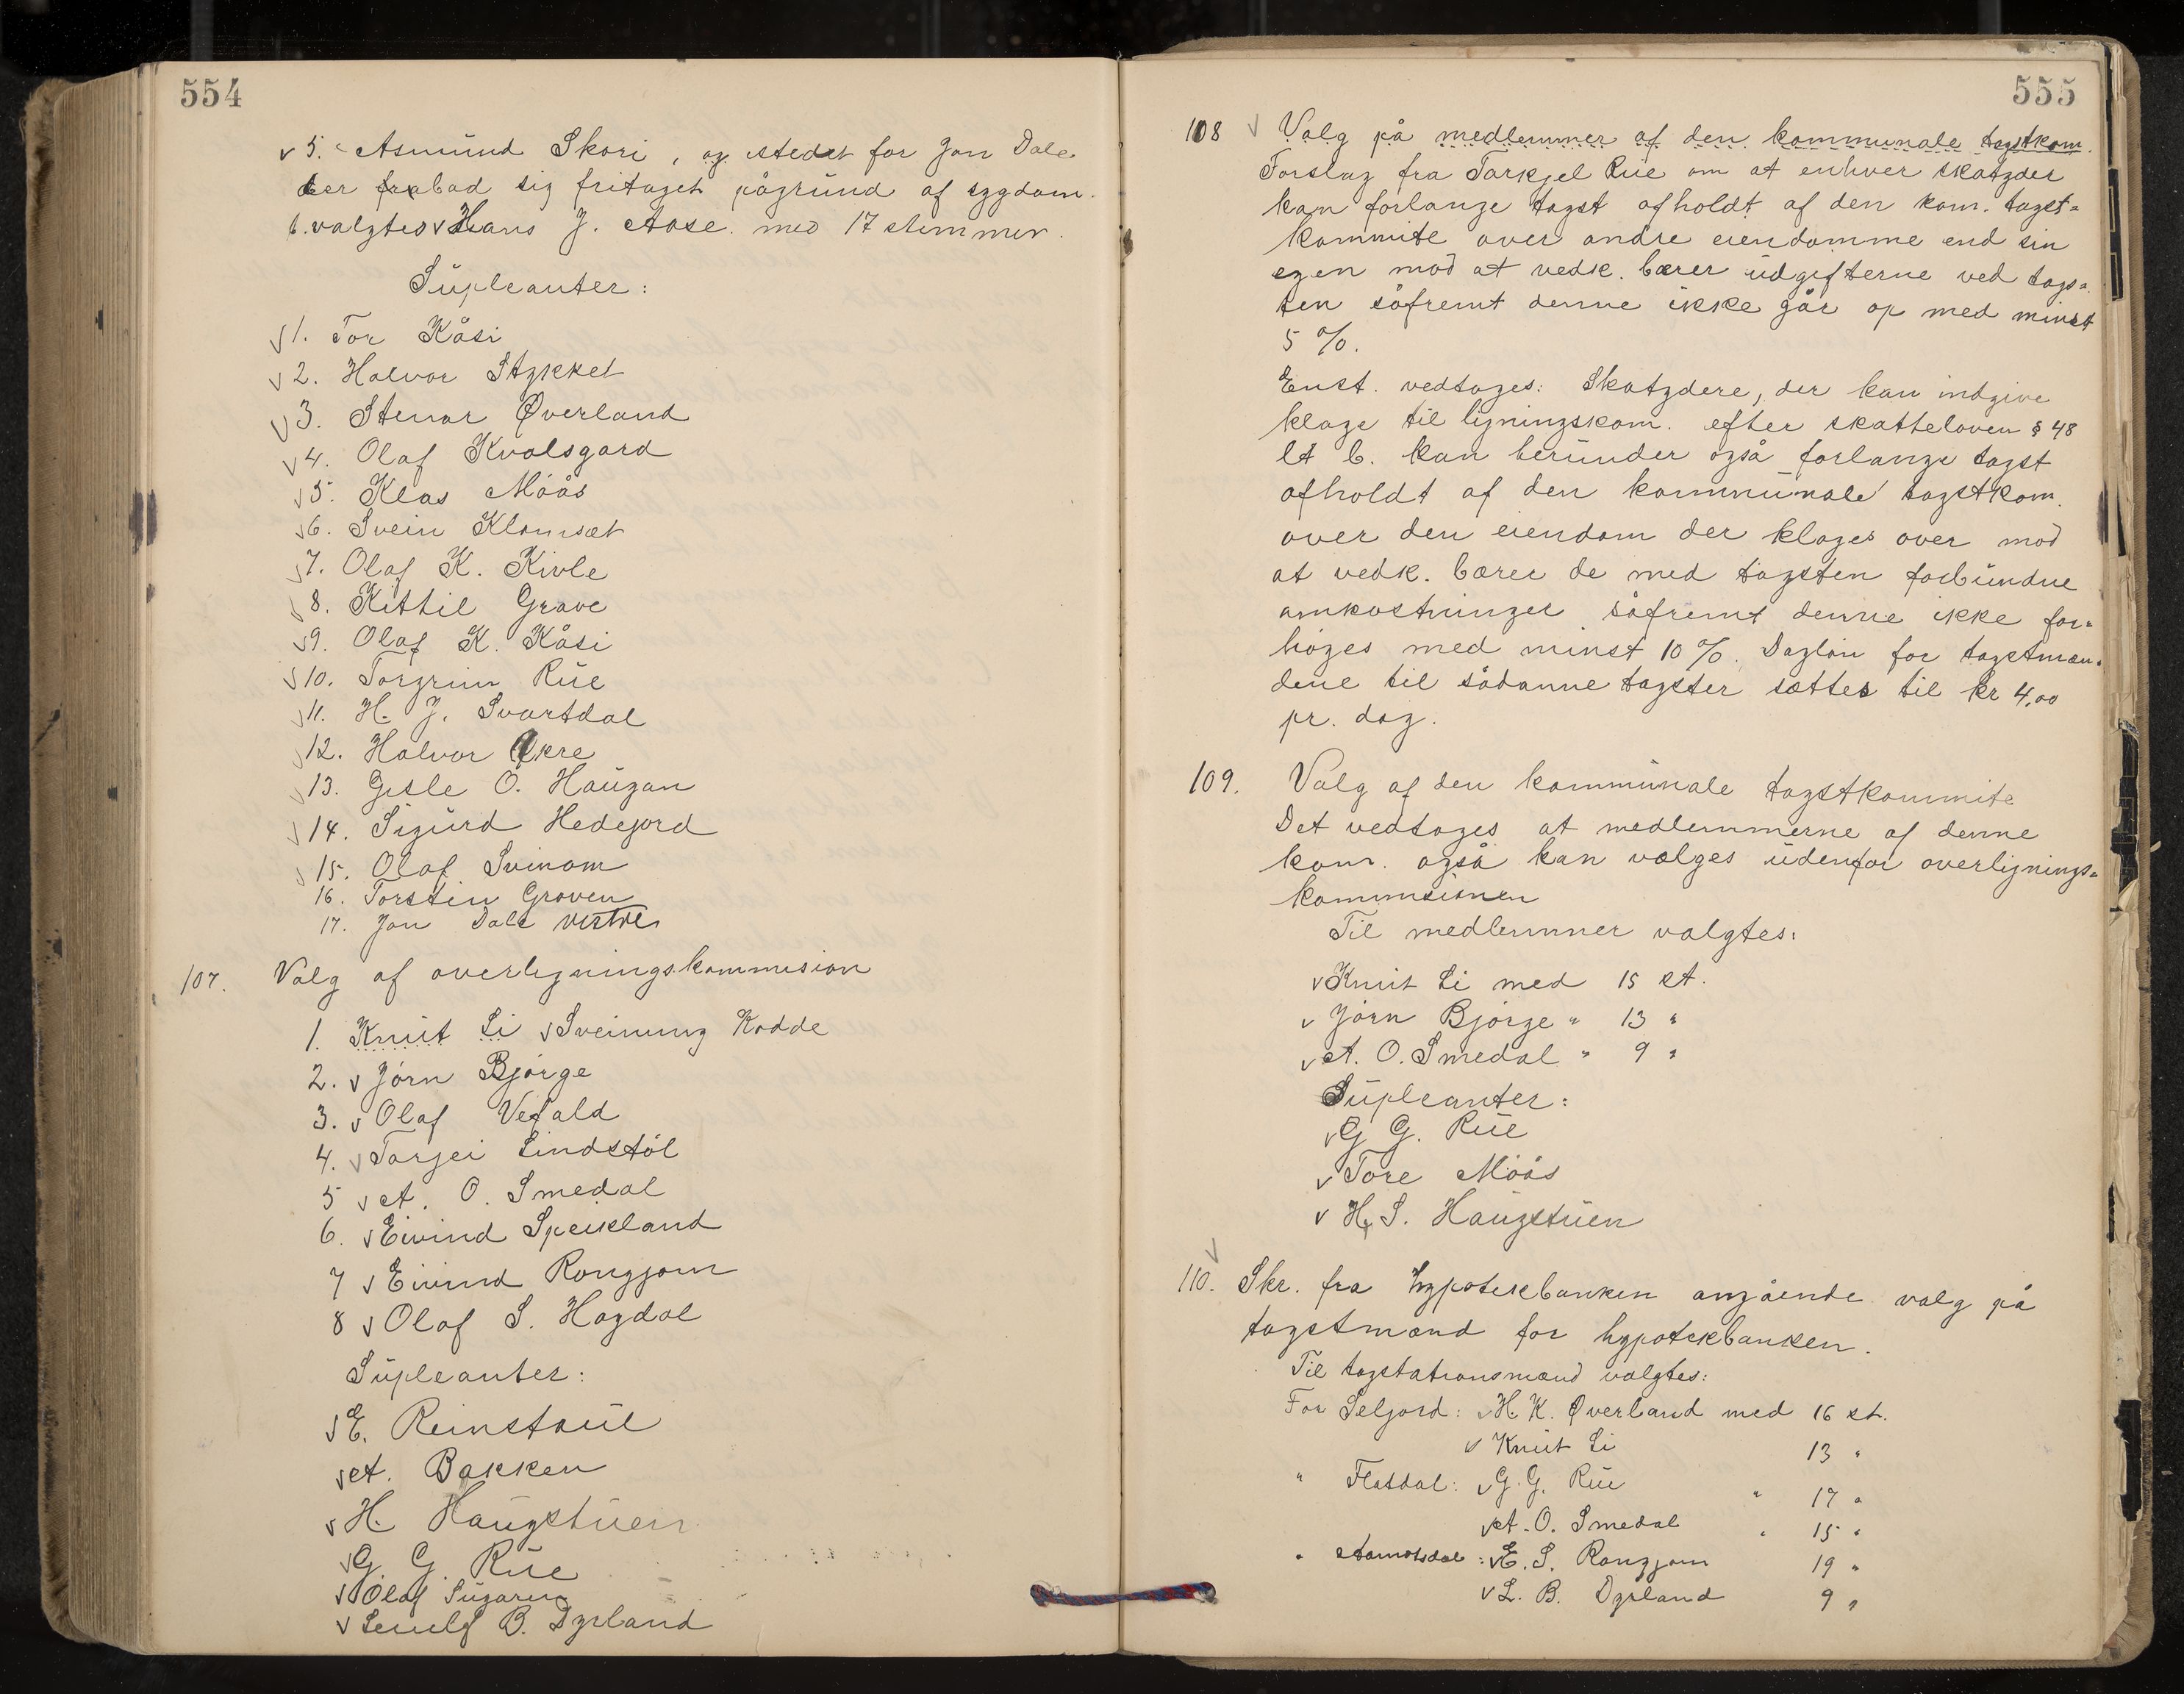 554
v 5. Asmund Skori, og istedet for Jon Dale
der frabad sig fritaget pågrund af sygdom.
6. valgtes v Hans J. Aase med 17 stemmer.
Supleanter:
v 1. Tor Kåsi
v 2. Halvor Stykket
v 3. Stenar Øverland
v 4. Olaf Kvolsgard
v 5. Klas Moås
v 6. Svein Klomsæt
v 7. Olaf K. Kivle
v 8. Kittil Grave
v 9. Olaf K. Kåsi
v 10. Torgrim Rue
v 11. H. J. Svartdal
v 12. Halvor Akre
v 13. Gisle O. Haugan
v 14. Sigurd Hedejord
v 15. Olaf Svinom
16. Torstin Groven
17. Jon Dale
107. Valg af overligningskommision
1. Knut Li v Sveinung Kodde
2. v Jörn Bjørge
3. v Olaf Vefald
4. v Tarjei Lindstöl
5 v A. O. Smedal
6. v Eivind Speikland
7 v Eivind Rongjom
8 v Olaf S. Hagdal
Supleanter:
v E. Reinstaul
v A. Bakken
v H. Haugstuen
v G. G. Rue
v Olaf
v Leiulf B. Dyrland
555
108 v Valg på medlemmer af den kommunale tagstkom.
Forslag fra Tarkjel Rue om at enhver skatyder
kan forlange tagst afholdt af den kom. tagst=
kommite over andre eiendomme end sin
egen mod at vedk. bærer udgifterne ved tags=
ten såfremt denne ikke går op med minst
5 %.
Enst. vedtages: Skatydere, der kan indgive
klage til ligningskom. efter skatteloven § 48
lt b. kan herunder også forlange tagst
afholdt af den kommunale tagstkom.
over den eiendom der klages over mod
at vedk. bærer de med tagsten forbundne
omkostninger såfremt denne ikke for=
höges med minst 10 %. Daglön for tagstmæn=
dene til sådanne tagster sættes til kr 4,00
pr. dag.
109. Valg af den kommunale tagstkommite
Det vedtages at medlemmerne af denne
kom. også kan vælges udenfor overlignings=
kommisionen
Til medlemmer valgtes:
v Knut Li med 15 st.
v Jörn Bjørge " 13 "
v A. O. Smedal " 9 "
Supleanter:
v G G. Rue
v Tore Moås
v H. S. Haugstuen
v
110. Skr. fra hypotekbanken angående valg på
tagstmænd for hypotekbanken.
Til tagstationsmænd valgtes:
For Seljord: v H. K. Øverland med 16 st.
v Knut Li 13 "
" Flatdal: v G. G. Rue " 17 "
v A. O. Smedal " 15 "
" Aamotsdal: v E. S. Rongjom 19 "
v L. B. Dyrland 9 "